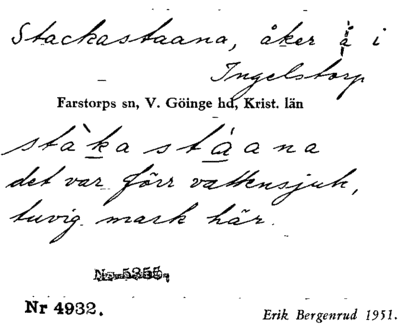 Stackastaana, åker å i
Ingelstorp
Farstorps sn, V. Göinge hd, Krist. län
stàkastáana
det var förr vattensjuk,
tuvig mark här.
No 5255.
Nr 4932.
Erik Bergenrud 1951.